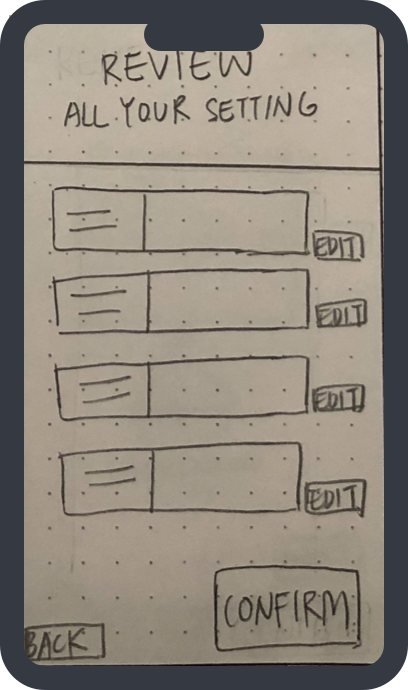 REVIEW
ALL YOUR SETTING
EDIT
EDIT
EDIT
EDIT
CONFIRM
BACK